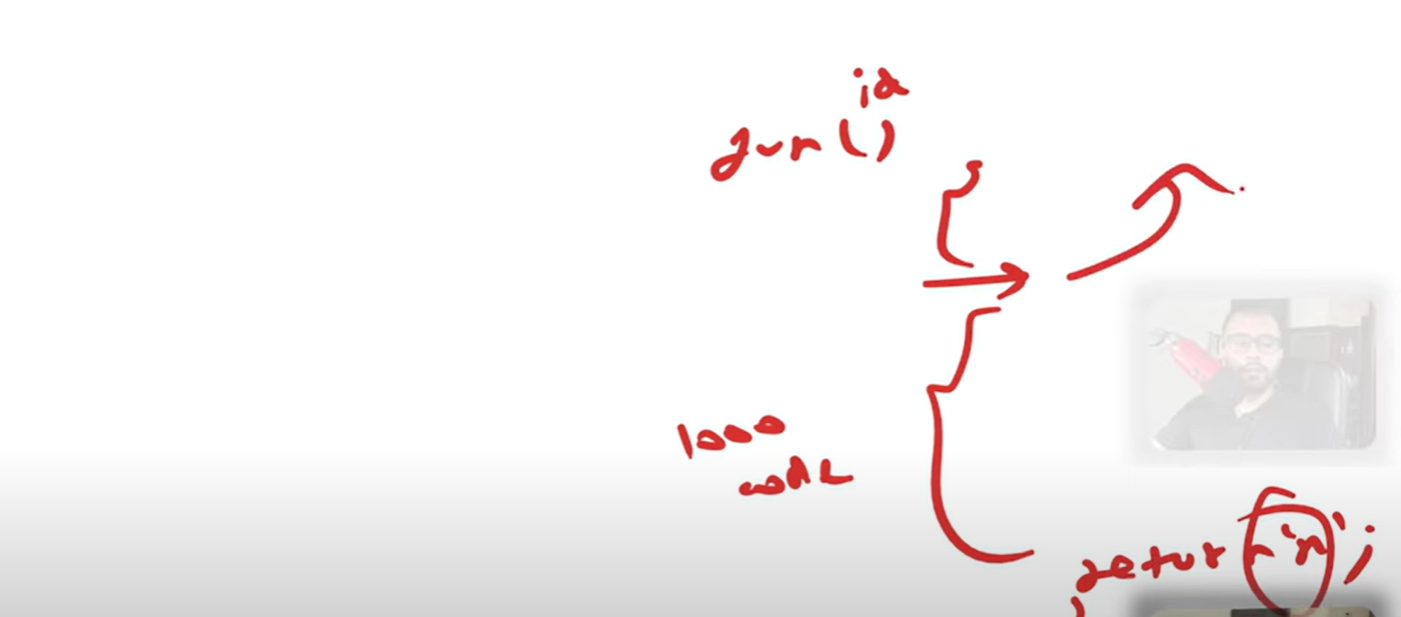 id
fun()
1000
code
return 'n';